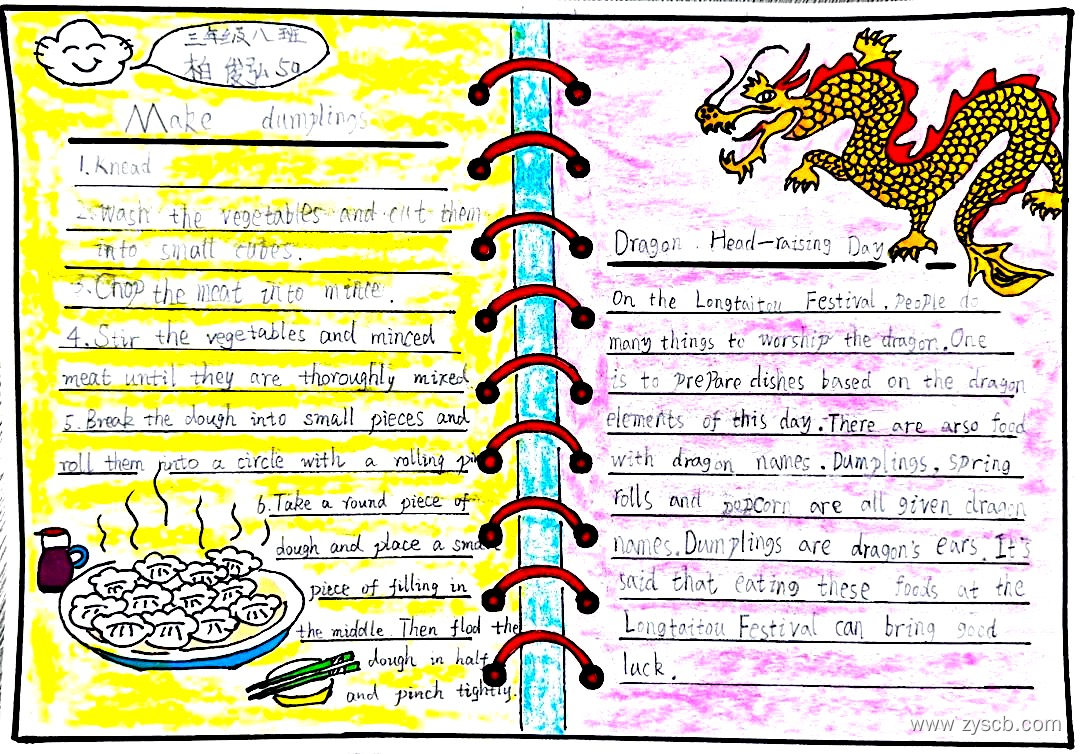 三年级八班
柏俊弘 50
Make dumplings
1. Knead
2. Wash the vegetables and cut them
into small cubes.
3. Chop the meat into mince.
4. Stir the vegetables and minced
meat until they are thoroughly mixed
5. Break the dough into small pieces and
roll them into a circle with a rolling pin
6. Take a round piece of
dough and place a small
piece of filling in
the middle. Then flod the
dough in half
and pinch tightly.
Dragon Head-raising Day
On the Longtaitou Festival, people do
many things to worship the dragon. One
is to prepare dishes based on the dragon
elements of this day. There are arso food
with dragon names. Dumplings, spring
rolls and popcorn are all given dragon
names. Dumplings are dragon's ears. It's
said that eating these foods at the
Longtaitou Festival can bring good
luck.
www.zyscb.com